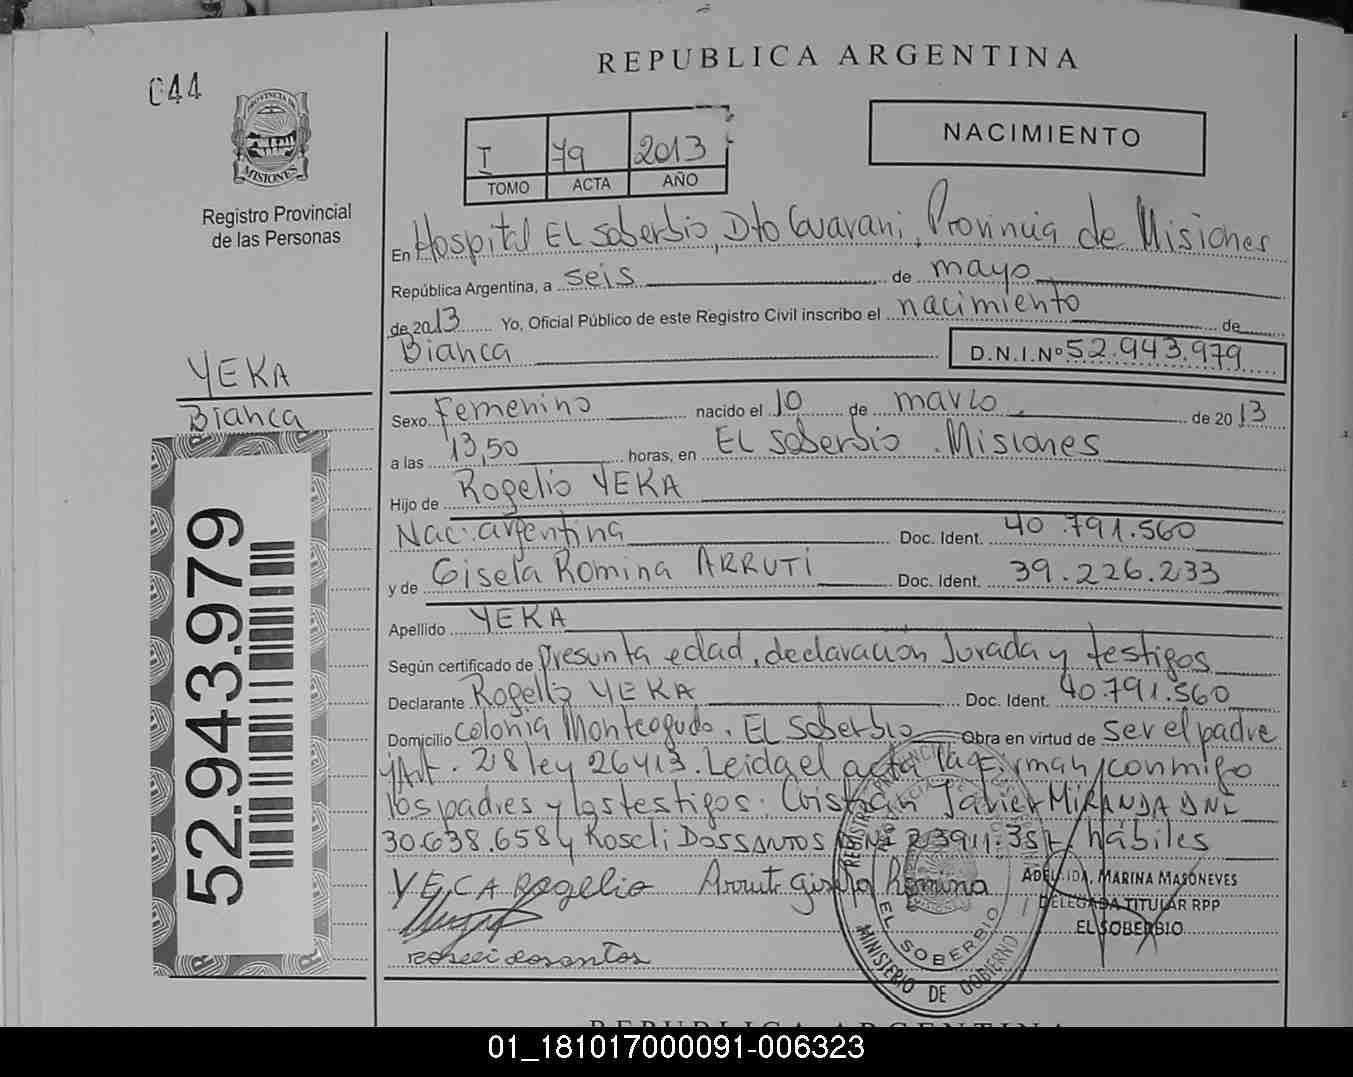 044
PROVINCIA DE
MISIONES
Registro Provincial
de las Personas
YEKA
Bianca
52.943.979
REPUBLICA ARGENTINA
I 79 2013
TOMO ACTA AÑO
NACIMIENTO
En Hospital El Soberbio, Dto Guarani, Provincia de Misiones
República Argentina, a seis de mayo
de 2013 Yo, Oficial Público de este Registro Civil inscribo el nacimiento de
Bianca D.N.I.Nº 52.943.979
Sexo Femenino nacido el 10 de marzo de 2013
a las 13,50 horas, en El Soberbio Misiones
Hijo de Rogelio YEKA
Nac: argentina Doc. Ident. 40.791.560
y de Gisela Romina ARRUTI Doc. Ident. 39.226.233
Apellido YEKA
Según certificado de presunta edad, declaración Jurada y testigos
Declarante Rogelio YEKA Doc. Ident. 40.791.560
Domicilio Colonia Monteagudo. El Soberbio Obra en virtud de ser el padre
y Art. 28 ley 26413. Leida el acta la firman conmigo
los padres y los testigos: Cristian Javier MIRANDA DNI
30.638.658 y Roseli DOSSANTOS DNI hábiles
YECA Rogelio Arruti Gisela Romina
ADELAIDA MARINA MASONEVES
DELEGADA TITULAR RPP
EL SOBERBIO
Roseli dosantos
EL SOBERBIO
MINISTERIO DE GOBIERNO
REPUBLICA ARGENTINA
01_181017000091-006323